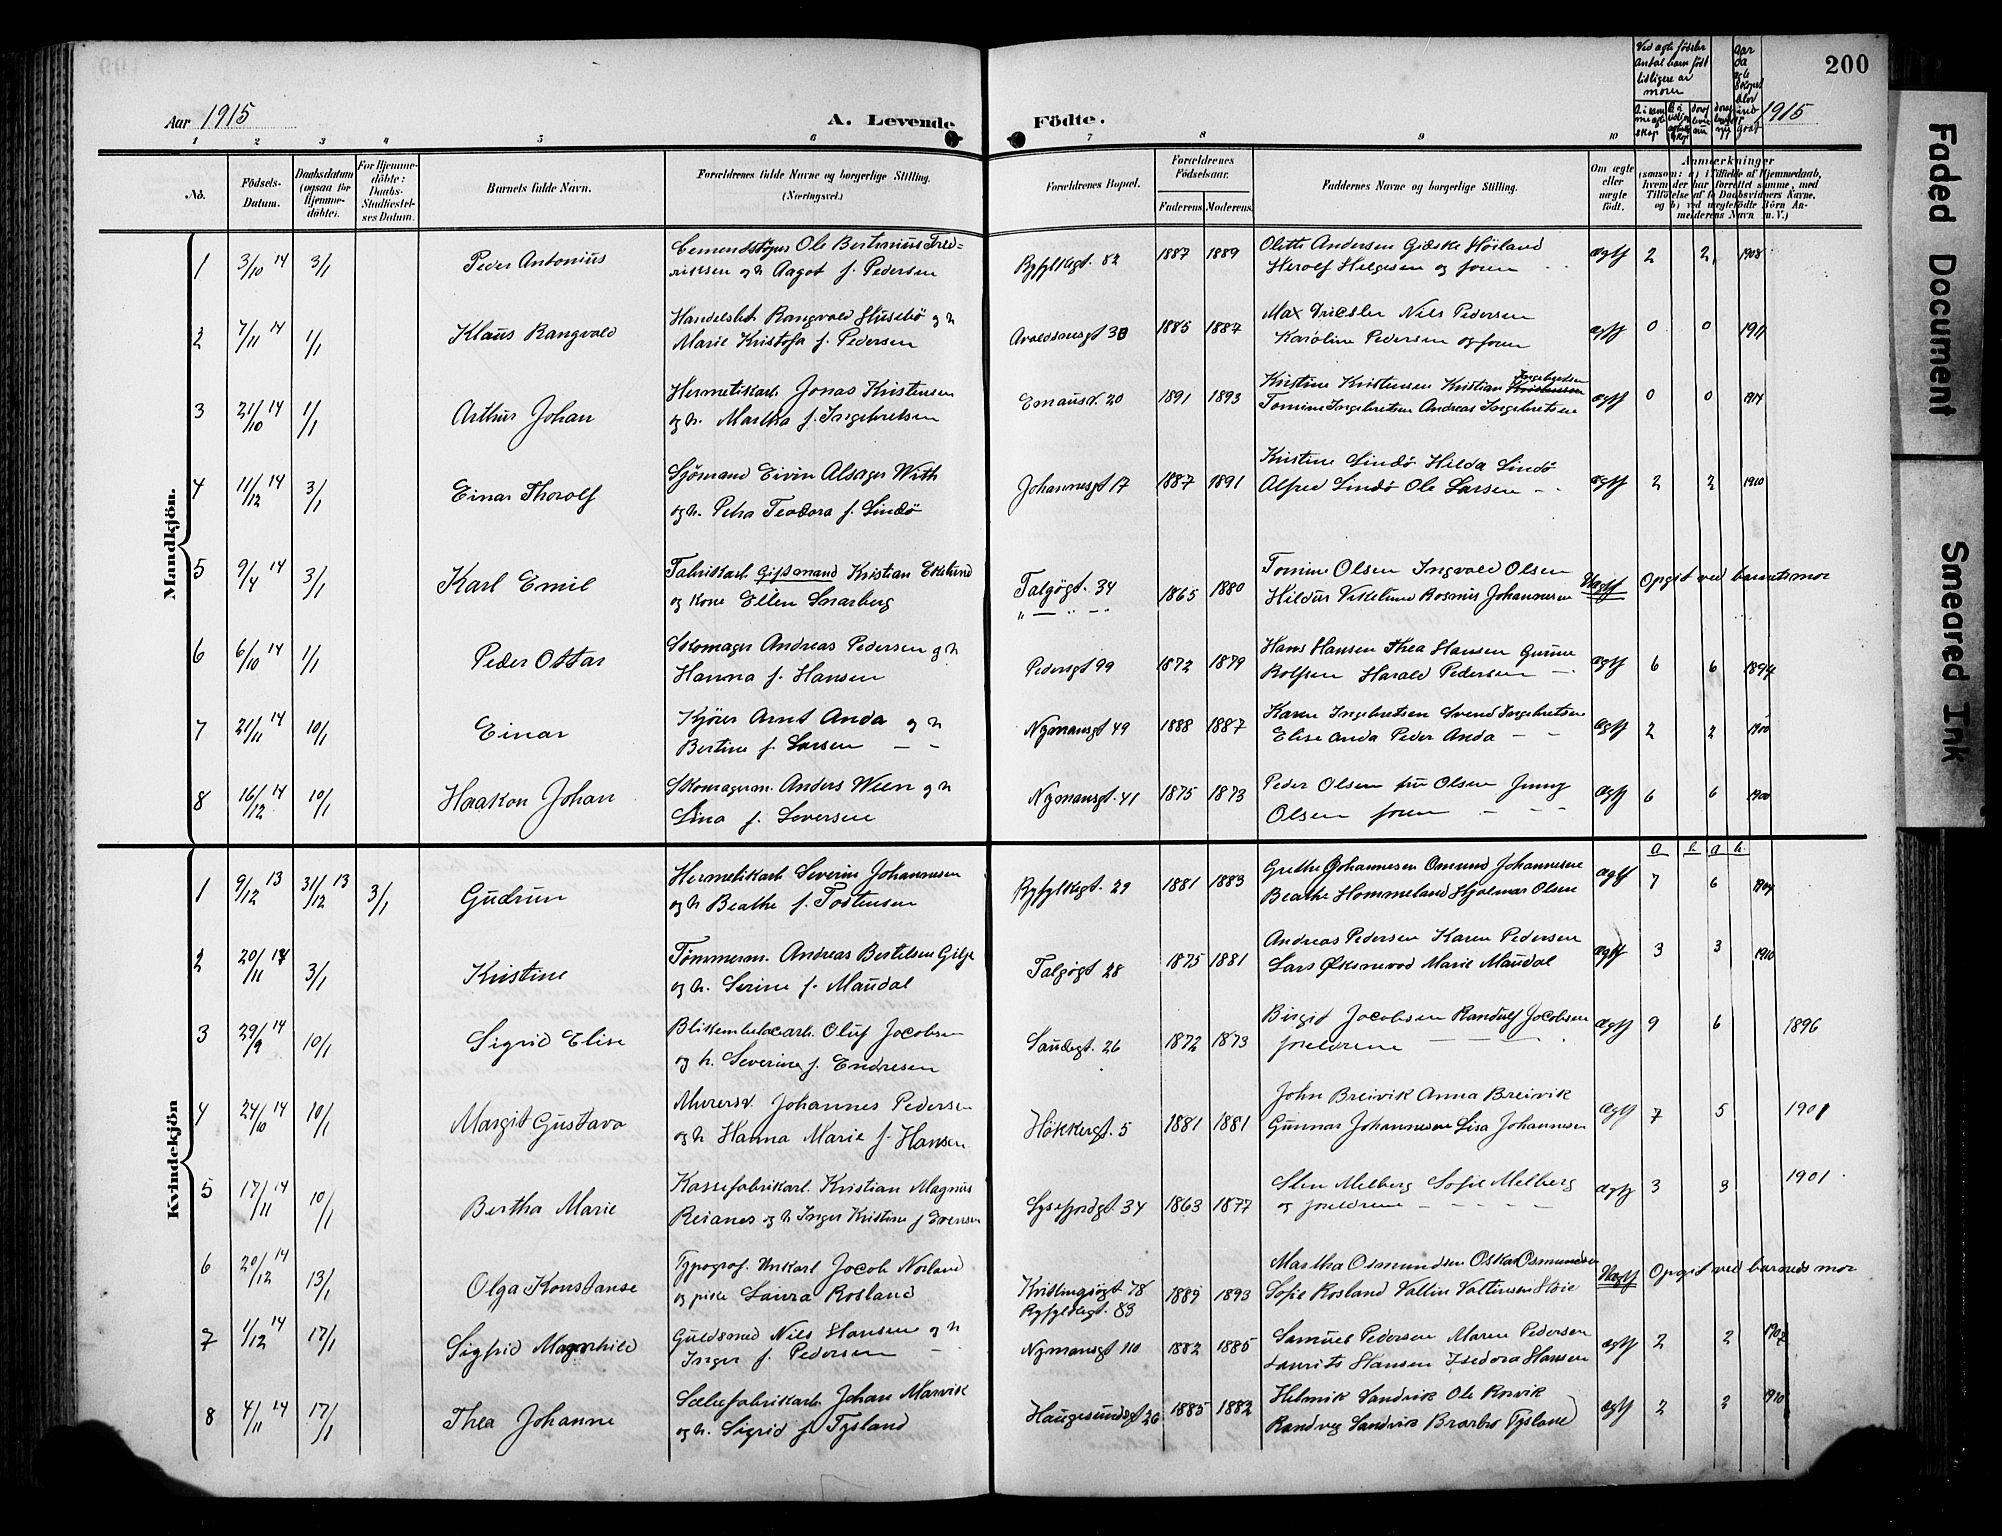 200
Aar 1915
A. Levende
Födte.
1915
Ved ægte fødsler
antal barn født
tidligere av
moren
1 2 3 4 5 6 7 8 9 10
No.
Födsels-Datum.
Daabsdatum (ogsaa for Hjemmedöbte).
For Hjemmedöbte: Daabs-Stadfæstelses Datum.
Barnets fulde Navn.
Forældrenes fulde Navne og borgerlige Stilling.
(Næringsvei.)
Forældrenes Bopæl.
Forældrenes Födselsaar.
Faderens. Moderens.
Faddernes Navne og borgerlige Stilling.
Om ægte eller uægte födt.
Anmærkninger
(saasom: a) i Tilfælde af Hjemmedaab,
hvem der har forrettet samme, med
Tilföielse af to Daabsvidners Navne,
og b) ved uægtefödte Börn An-
melderens Navn m. V.)
Mandkjön.
1 3/10 14 3/1 Peder Antonius Cementstøper Ole Bertinius Fred=
riksen og h Aagot f. Pedersen Ryfylkegt. 82 1887 1889 Olette Andersen Gidske Høiland
Herolf Helgesen og foren ægte 2 2 1908
2 7/11 14 1/1 Klaus Rangvald Handelsbt. Rangvald Husebø og h
Marie Kristofa f. Pedersen Avaldsnesgt 30 1885 1887 Max Driesler Nils Pedersen
Karoline Pedersen og foren ægte 0 0 1911
3 21/10 14 1/1 Arthur Johan Hermetikarb Jonas Kristensen
og h. Martha f. Ingebretsen Emausv. 20 1891 1893 Kristine Kristensen Kristian Ingebretsen
Tomine Ingebretsen Andreas Ingebretsen ægte 0 0 1914
4 11/12 14 3/1 Einar Thorolf Sjømand Eivin Alsager With
og h. Petra Teodora f. Lindø Johannesgt 17 1887 1891 Kristine Lindø Hilda Lindø
Alfred Lindø Ole Larsen ægte 2 2 1910
5 9/4 14 3/1 Karl Emil Fabrikarb. Gift mand Kristian Eklund
og kone Ellen Snarberg Talgøgt. 34 1865 1880 Tomine Olsen Ingvald Olsen
Hildur Vikelund Rasmus Johannesen Uægte Opgit ved barnets mor
6 6/10 14 1/1 Peder Ottar Skomager Andreas Pedersen og h
Hanna f. Hansen Pedersgt 99 1872 1879 Hans Hansen Thea Hansen Gunne
Rolfsen Harald Pedersen ægte 6 6 1894
7 21/11 14 10/1 Einar Kjører Arnt Anda og h
Bertine f. Larsen Nymansgt 49 1888 1887 Karen Ingebretsen Svend Ingebretsen
Elise Anda Peder Anda ægte 2 2 1910
8 16/12 14 10/1 Haakon Johan Skomagerm. Anders Wien og h
Lina f. Seversen Nymansgt. 41 1875 1873 Peder Olsen fru Olsen Jenny
Olsen foren ægte 6 6 1900
Kvindekjön
1 9/12 13 31/12 13 3/1 Gudrun Hermetikarb Severin Johannesen
og h Beathe f. Tostensen Ryfylkegt. 29 1881 1883 Grethe Johannesen Omund Johannesen
Beathe Hommeland Hjalmar Olsen ægte 7 6 1904
2 20/11 14 3/1 Kristine Tømmerm. Andreas Bertelsen Gilje
og h. Serine f. Maudal Talgøgt 28 1875 1881 Andreas Pedersen Karen Pedersen
Lars Øksnevad Marie Maudal ægte 3 3 1910
3 29/9 14 10/1 Sigrid Elise Blikemballagearb. Oluf Jacobsen
og h. Severine f. Endresen Saudegt. 26 1872 1873 Birgit Jacobsen Randulf Jacobsen
foreldrene ægte 9 6 1896
4 24/10 14 10/1 Margit Gustava Murersv. Johannes Pedersen
og h Hanna Marie f. Hansen Høkkergt. 5 1881 1881 John Breivik Anna Breivik
Gunnar Johannesen Lisa Johannesen ægte 7 5 1901
5 17/11 14 10/1 Bertha Marie Kassefabrikarb. Kristian Magnus
Reianes og h Inger Kristine f Svensen Lysefjordgt. 34 1863 1877 Sten Melberg Sofie Melberg
og foreldrene ægte 3 3 1901
6 20/12 14 13/1 Olga Konstanse Typograf. Unkarl Jacob Norland
og pike Laura Rosland Kvitlingsøgt 78
Ryfylkegt. 83 1889 1893 Martha Osmundsen Oskar Osmundsen
Sofie Rosland Valtin Valtinsen Hoie Uægte Opgit ved barnets mor
7 1/12 14 17/1 Sigfrid Magnhild Guldsmed Nils Hansen og h
Inger f. Pedersen Nymansgt 110 1882 1885 Samuel Pedersen Maren Pedersen
Laurits Hansen Isedora Hansen ægte 2 2 1907
8 4/11 14 17/1 Thea Johanne Sælefabrikarb Johan Marvik
og h. Sigrid f Tysland Haugesundsgt 26 1885 1882 Helmik Sandvik Ole Rosvik
Randveg Sandvik Brarbra Tysland ægte 2 2 1910
Faded Document
Smeared Ink